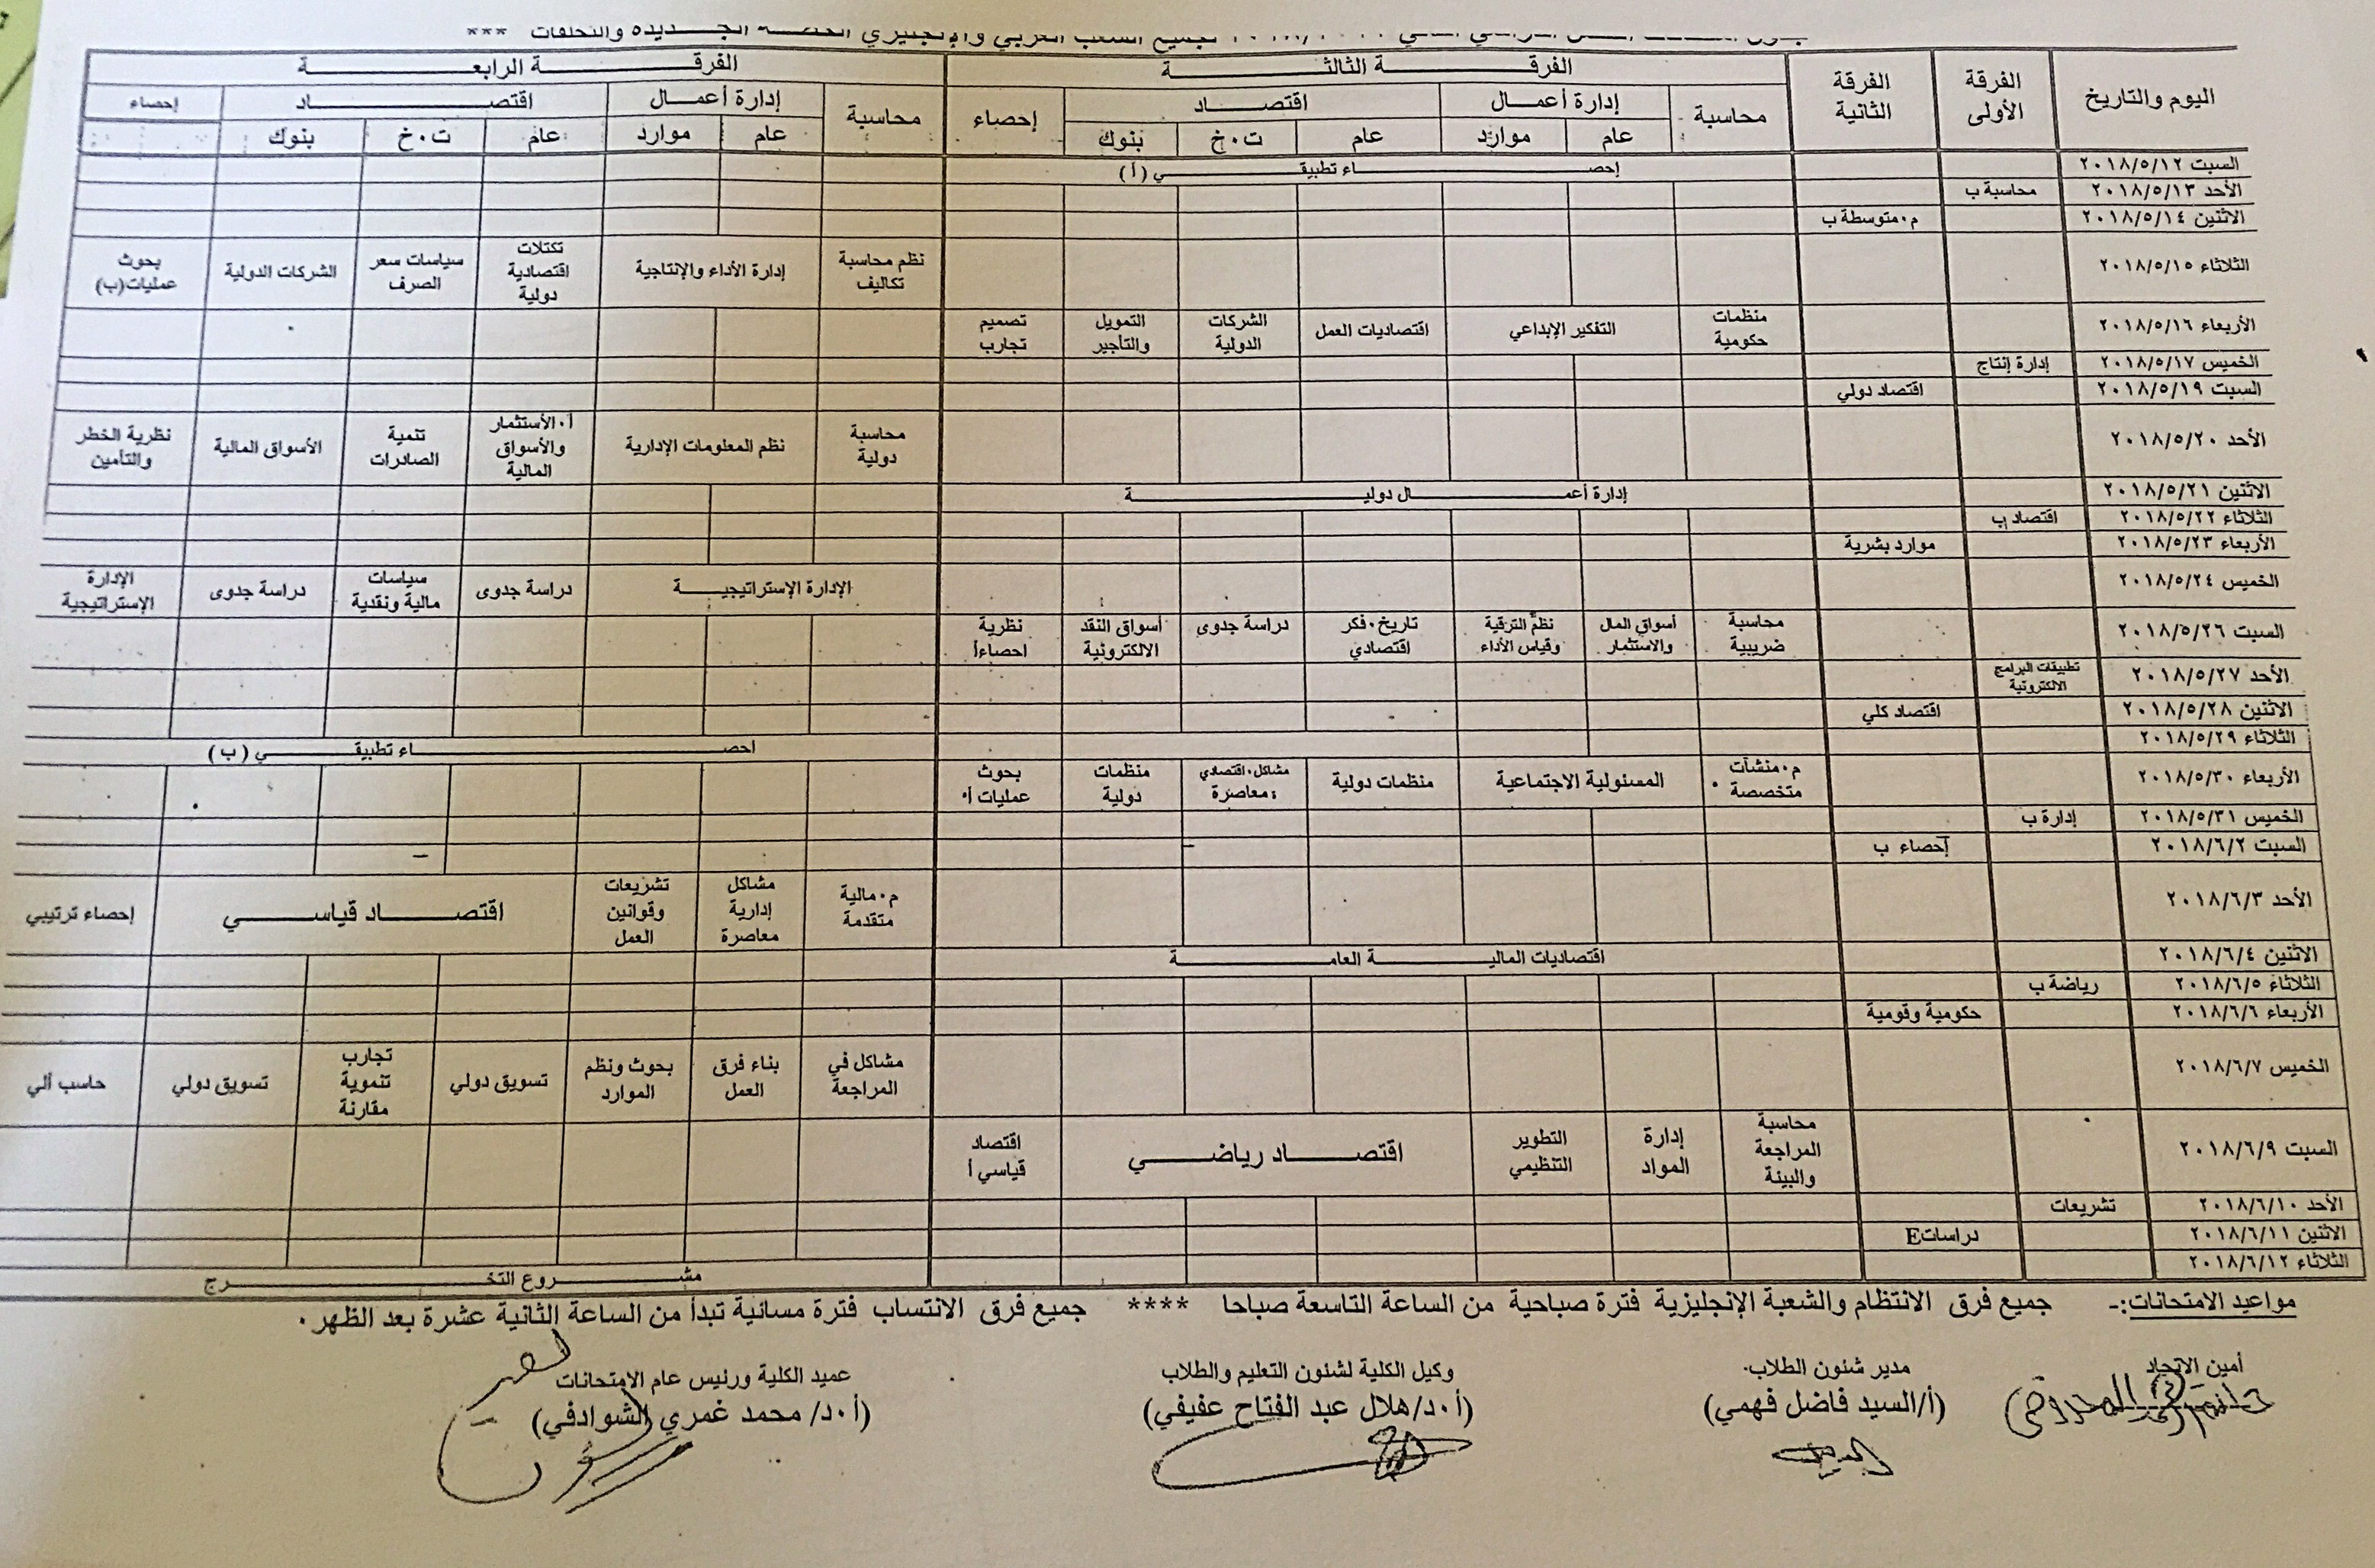 لجميع الشعب العربي والإنجليزي الجـــديدة والتخلفات ***
اليوم والتاريخ الفرقة الأولى الفرقة الثانية الفرقـــة الثالثـــة الفرقـــة الرابعـــة
محاسبة إدارة أعمـــال اقتصـــاد إحصاء محاسبة إدارة أعمـــال اقتصـــاد إحصاء
عام موارد عام ت.خ بنوك عام موارد عام ت.خ بنوك
السبت ٢٠١٨/٥/١٢ إحصـــاء تطبيقـــي (أ)
الأحد ٢٠١٨/٥/١٣ محاسبة ب
الاثنين ٢٠١٨/٥/١٤ م.متوسطة ب
الثلاثاء ٢٠١٨/٥/١٥ نظم محاسبة تكاليف إدارة الأداء والإنتاجية تكتلات اقتصادية دولية سياسات سعر الصرف الشركات الدولية بحوث عمليات(ب)
الأربعاء ٢٠١٨/٥/١٦ منظمات حكومية التفكير الإبداعي اقتصاديات العمل الشركات الدولية التمويل والتأجير تصميم تجارب
الخميس ٢٠١٨/٥/١٧ إدارة إنتاج
السبت ٢٠١٨/٥/١٩ اقتصاد دولي
الأحد ٢٠١٨/٥/٢٠ محاسبة دولية نظم المعلومات الإدارية أ.الأستثمار والأسواق المالية تنمية الصادرات الأسواق المالية نظرية الخطر والتأمين
الاثنين ٢٠١٨/٥/٢١ إدارة أعمـــال دوليـــة
الثلاثاء ٢٠١٨/٥/٢٢ اقتصاد ب
الأربعاء ٢٠١٨/٥/٢٣ موارد بشرية
الخميس ٢٠١٨/٥/٢٤ الإدارة الإستراتيجيـــة دراسة جدوى سياسات مالية ونقدية دراسة جدوى الإدارة الإستراتيجية
السبت ٢٠١٨/٥/٢٦ محاسبة ضريبية أسواق المال والاستثمار نظم الترقية وقياس الأداء تاريخ.فكر اقتصادي دراسة جدوى أسواق النقد الالكترونية نظرية احصاءأ
الأحد ٢٠١٨/٥/٢٧ تطبيقات البرامج الالكترونية
الاثنين ٢٠١٨/٥/٢٨ اقتصاد كلي
الثلاثاء ٢٠١٨/٥/٢٩ احصـــاء تطبيقـــي (ب)
الأربعاء ٢٠١٨/٥/٣٠ م.منشآت متخصصة المسئولية الاجتماعية منظمات دولية مشاكل.اقتصادي معاصرة منظمات دولية بحوث عمليات أ
الخميس ٢٠١٨/٥/٣١ إدارة ب
السبت ٢٠١٨/٦/٢ إحصاء ب
الأحد ٢٠١٨/٦/٣ م.مالية متقدمة مشاكل إدارية معاصرة تشريعات وقوانين العمل اقتصـــاد قياســـي إحصاء ترتيبي
الاثنين ٢٠١٨/٦/٤ اقتصاديات الماليـــة العامـــة
الثلاثاء ٢٠١٨/٦/٥ رياضة ب
الأربعاء ٢٠١٨/٦/٦ حكومية وقومية
الخميس ٢٠١٨/٦/٧ مشاكل في المراجعة بناء فرق العمل بحوث ونظم الموارد تسويق دولي تجارب تنموية مقارنة تسويق دولي حاسب ألي
السبت ٢٠١٨/٦/٩ محاسبة المراجعة والبيئة إدارة المواد التطوير التنظيمي اقتصـــاد رياضـــي اقتصاد قياسي أ
الأحد ٢٠١٨/٦/١٠ تشريعات
الاثنين ٢٠١٨/٦/١١ دراساتE
الثلاثاء ٢٠١٨/٦/١٢ مشـــروع التخـــرج
مواعيد الامتحانات:- جميع فرق الانتظام والشعبة الإنجليزية فترة صباحية من الساعة التاسعة صباحا **** جميع فرق الانتساب فترة مسائية تبدأ من الساعة الثانية عشرة بعد الظهر.
أمين الاتحاد مدير شئون الطلاب. وكيل الكلية لشئون التعليم والطلاب عميد الكلية ورئيس عام الامتحانات
(أ/السيد فاضل فهمي) (أ.د/هلال عبد الفتاح عفيفي) (أ.د/ محمد غمري الشوادفي)